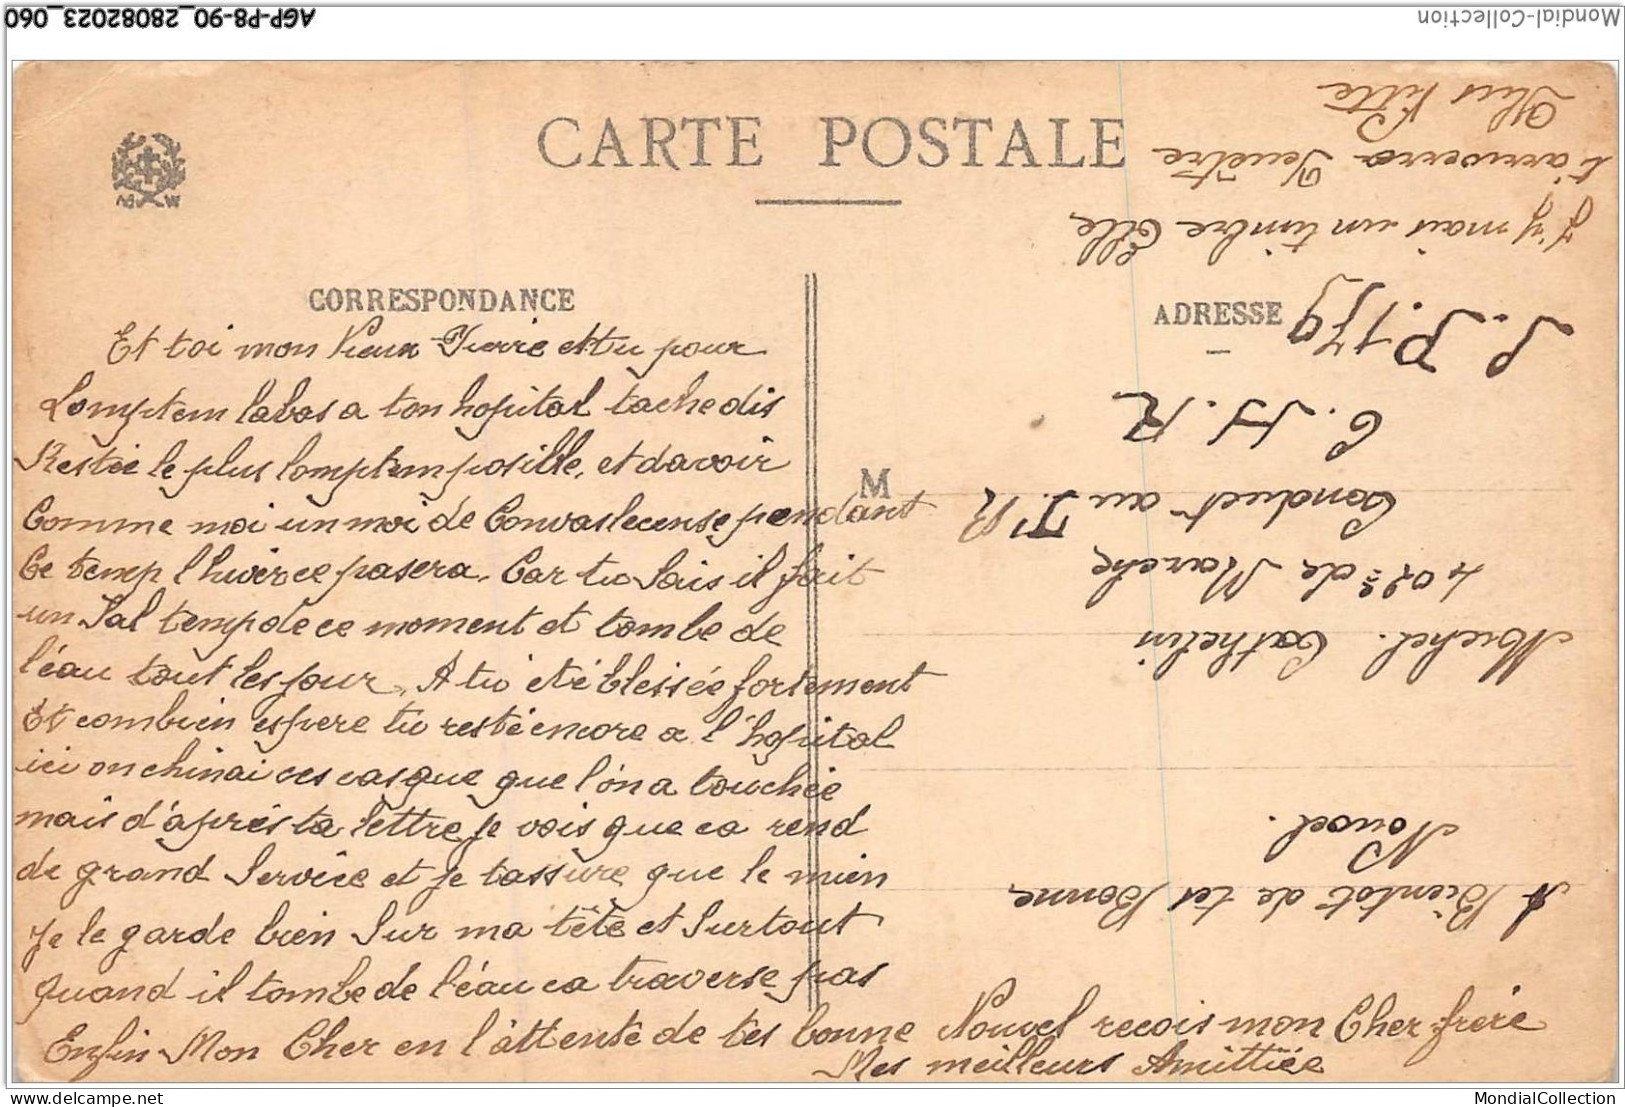 AGP-P8-90_28082023_060
Mondial-Collection
CARTE POSTALE
CORRESPONDANCE
ADRESSE
M
Et toi mon Vieux Pierre et tu pour
Lomptem labas a ton hopital tache dis
Restée le plus lomptem posille, et davoir
Comme moi un moi de Convaslecense pendant
Ce temp l'hiver ce pasera. Car tu Sais il fait
un Sal temp de ce moment et tombe de
l'éau tout les jour, A tu été blessée fortement
Et combien espere tu resté encore a l'hopital
ici on chinai ces casque que l'on a touchée
mais d'apres ta lettre je vois que ca rend
de grand Service et je tassure que le mien
Je le garde bien Sur ma tête et Surtout
quand il tombe de l'éau ca traverse pas
Enfin Mon Cher en l'attente de tes bonne Nouvel recois mon Cher frére
Mes meilleurs Amittiée
A Bientot de tes Bonne
Nouvel.
Michel. Cathelin
402e de Marche
Conduct au T. R
C. H. R
S. P. 179
J'y mais un timbre Elle
t'arrivera Peuêtre
Plus Vitte
MondialCollection
delcampe.net